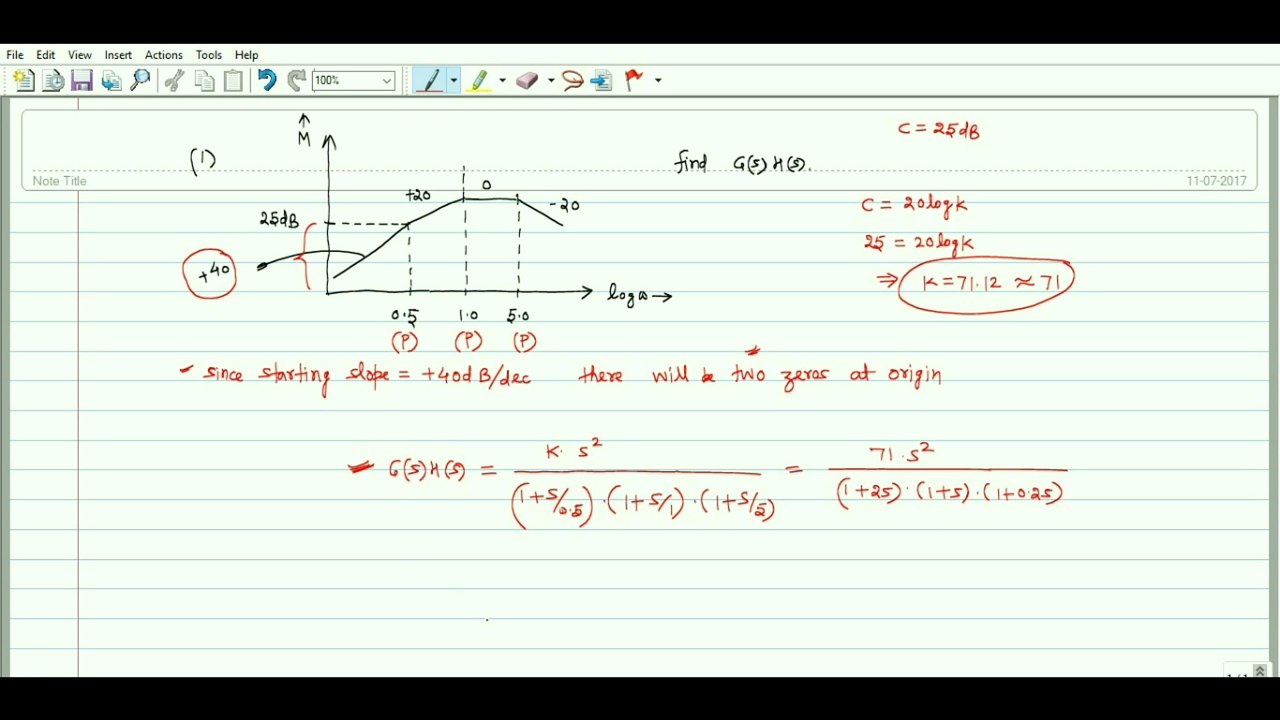 File Edit View Insert Actions Tools Help
100%
Note Title
11-07-2017
(1)
M
find G(s)H(s).
C = 25dB
+20
0
-20
25dB
+40
0.5 1.0 5.0
(P) (P) (P)
logω→
C = 20logK
25 = 20logK
⇒ K = 71.12 ≈ 71
since starting slope = +40dB/dec there will be two zeros at origin
G(s)H(s) = K. s² / (1+s/0.5).(1+s/1).(1+s/5) = 71.s² / (1+2s).(1+s).(1+0.2s)